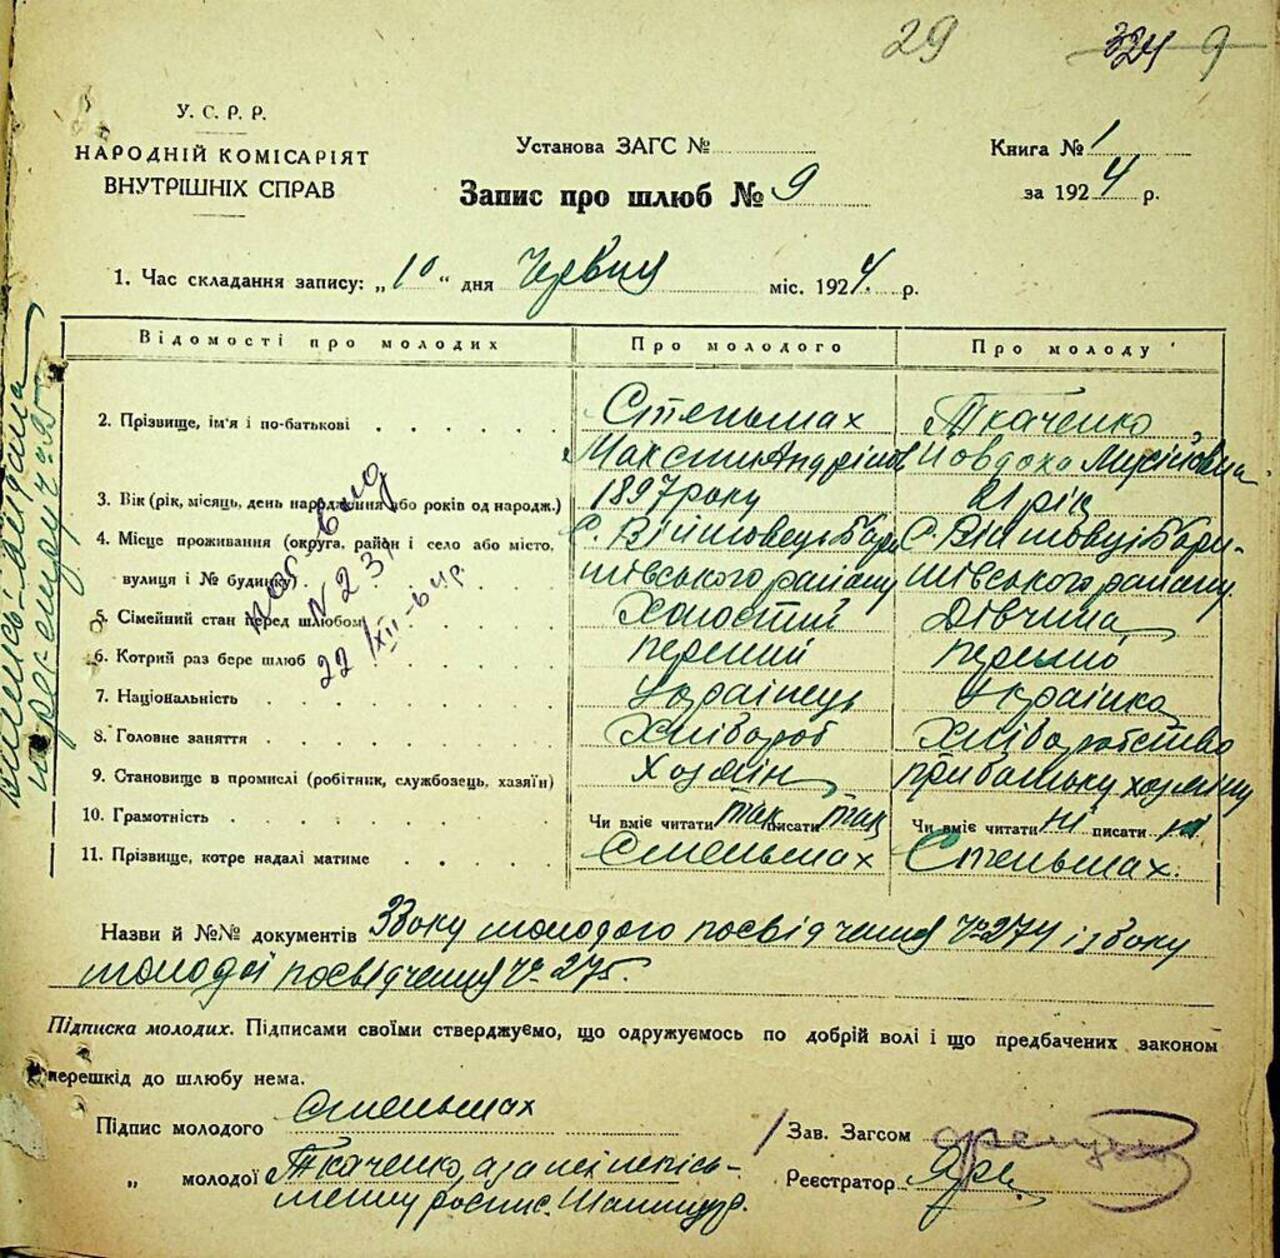 29 324 9
У. С. Р. Р.
НАРОДНІЙ КОМІСАРІЯТ
ВНУТРІШНІХ СПРАВ
Установа ЗАГС №
Запис про шлюб № 9
Книга № 1
за 1924 р.
1. Час складання запису: „10“ дня Червня міс. 1924 р.
Відомості про молодих Про молодого Про молоду
2. Прізвище, ім'я і по-батькові Стельмах Ткаченко
Максим Андріїов Йовдоха Мусіївна
3. Вік (рік, місяць, день народження або років од народж.) 1897 року 21 рік
4. Місце проживання (округа, район і село або місто, С. Війтовець Бари С. Війтовці Бари-
вулиця і № будинку) шівського району шівського району
5. Сімейний стан перед шлюбом Холостий Дівчина
6. Котрий раз бере шлюб перший перший
7. Національність Українець Українка
8. Головне заняття Хлібороб Хліборобство
9. Становище в промислі (робітник, службозець, хазяїн) хозяїн при батьку хозяїну
10. Грамотність Чи вміє читати так писати так Чи вміє читати ні писати ні
11. Прізвище, котре надалі матиме Стельмах Стельмах.
№ 23
22/XII-
Назви й №№ документів З боку молодого посвідчення Ч° 274 і з боку
молодої посвідчення Ч° 275.
Підписка молодих. Підписами своїми стверджуємо, що одружуємось по добрій волі і що предбачених законом
перешкід до шлюбу нема.
Підпис молодого Стельмах
„ молодої Ткаченко, а за неї неписьменну роспис.
Зав. Загсом
Реєстратор